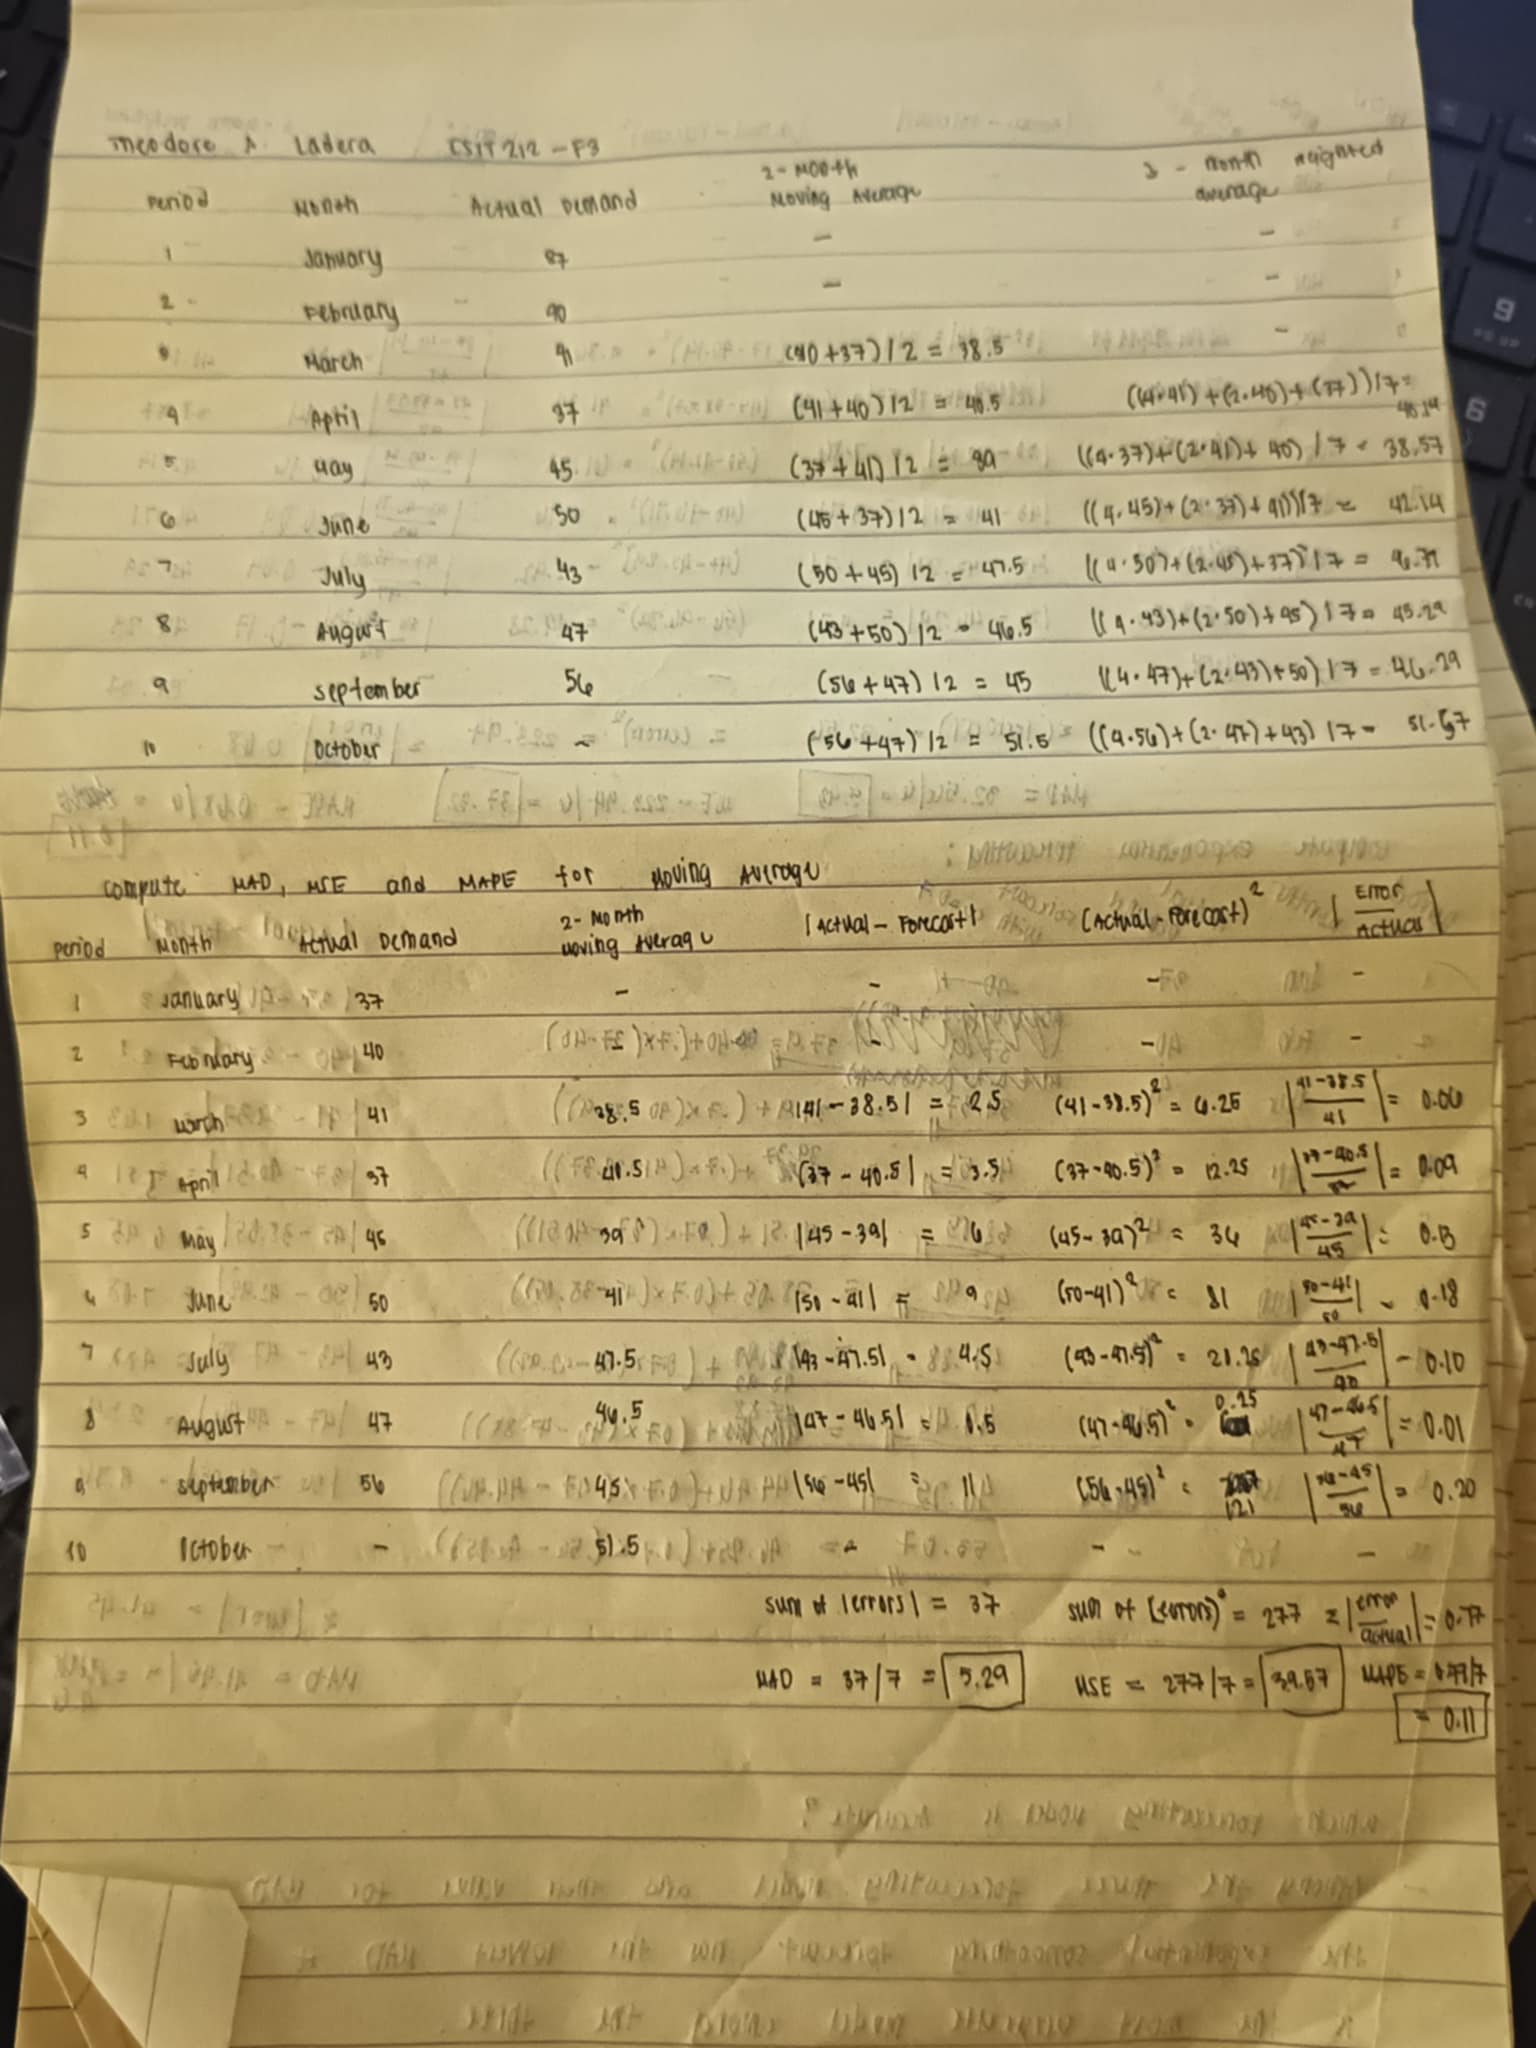 Theodore A Ladera CSIT 212 - F3
Period Month Actual Demand 2-Month Moving Average 3-Month Weighted average
1 January 37 - -
2 February 40 - -
3 March 41 (40+37)/2 = 38.5 -
4 April 37 (41+40)/2 = 40.5 ((4·41)+(2·40)+(37))/7= 40.14
5 May 45 (37+41)/2 = 39 ((4·37)+(2·41)+40)/7 = 38.57
6 June 50 (45+37)/2 = 41 ((4·45)+(2·37)+41)/7 = 42.14
7 July 43 (50+45)/2 = 47.5 ((4·50)+(2·45)+37)/7 =
8 August 47 (43+50)/2 = 46.5 ((4·43)+(2·50)+45)/7 = 45.29
9 September 56 (56+47)/2 = 45 ((4·47)+(2·43)+50)/7 = 46.29
10 October - (56+47)/2 = 51.5 ((4·56)+(2·47)+43)/7 = 51.57
Compute MAD, MSE and MAPE for Moving Average
Period Month Actual Demand 2-Month Moving Average |Actual - Forecast| (Actual-Forecast)² |Error/Actual|
1 January 37 - - - -
2 February 40 - - - -
3 March 41 38.5 |41-38.5| = 2.5 (41-38.5)² = 6.25 |41-38.5/41| = 0.06
4 April 37 40.5 |37-40.5| = 3.5 (37-40.5)² = 12.25 |37-40.5/37| = 0.09
5 May 45 39 |45-39| = 6 (45-39)² = 36 |45-39/45| = 0.13
6 June 50 41 |50-41| = 9 (50-41)² = 81 |50-41/50| = 0.18
7 July 43 47.5 |43-47.5| = 4.5 (43-47.5)² = 20.25 |43-47.5/43| = 0.10
8 August 47 46.5 |47-46.5| = 0.5 (47-46.5)² = 0.25 |47-46.5/47| = 0.01
9 September 56 45 |56-45| = 11 (56-45)² = 121 |56-45/56| = 0.20
10 October - 51.5 - - -
sum of |errors| = 37 sum of (errors)² = 277 Σ|error/actual| = 0.77
MAD = 37/7 = 5.29 MSE = 277/7 = 39.57 MAPE = 0.77/7
= 0.11